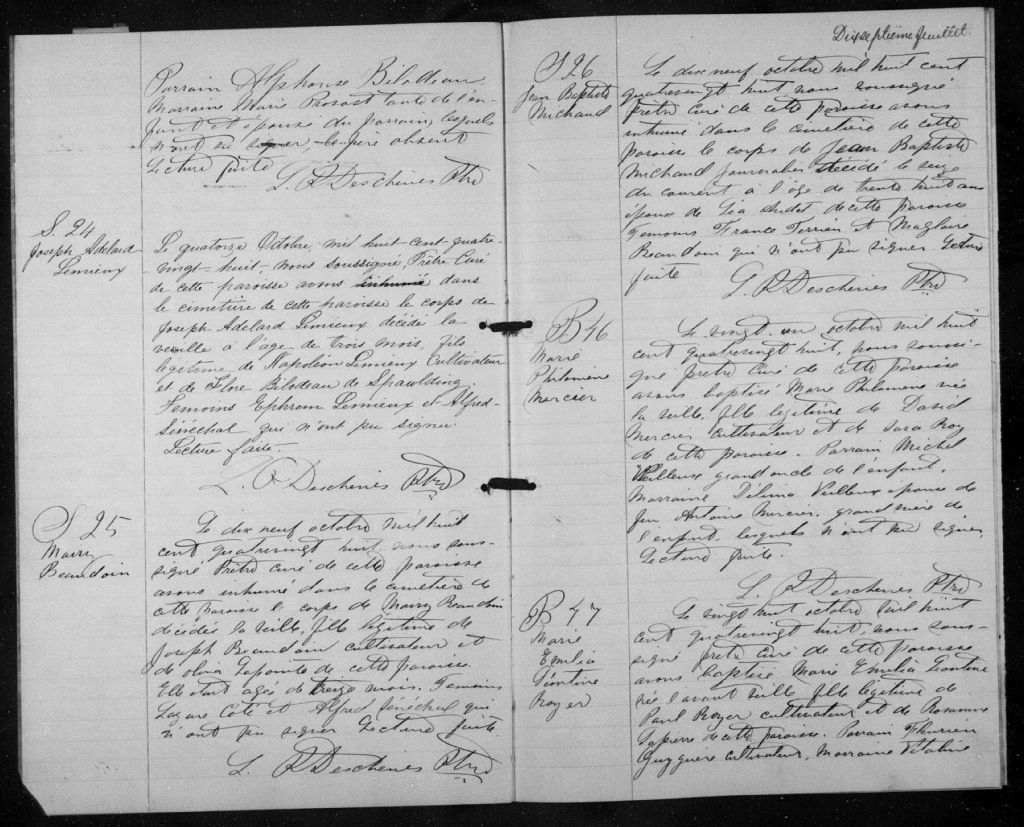 Parrain Alphonse Bilodeau
Marraine Marie Provost tante de l'en-
fant et épouse du parrain, lesquels
n'ont su signer le père absent
Lecture faite
L. P. Deschenes Ptre
S. 24
Joseph Adelard
Lemieux
Le quatorze Octobre, mil huit-cent-quatre-
vingt-huit, nous soussigné, Prêtre Curé
de cette paroisse avons inhumé dans
le cimetière de cette paroisse le corps de
Joseph Adelard Lemieux décédé la
veille à l'age de trois mois, fils
légitime de Napoléon Lemieux Cultivateur
et de Flore Bilodeau de Spaulding
Temoins Ephrem Lemieux et Alfred-
Sénéchal qui n'ont pu signer.
Lecture faite.
L. P. Deschenes Ptre
S 25
Marry
Beaudoin
Le dix neuf octobre mil huit
cent quatrevingt huit, nous sous-
signé Prêtre curé de cette paroisse
avons inhumé dans le cimetière de
cette Paroisse le corps de Marry Beaudoin
décédée la veille, fille légitime de
Joseph Beaudoin cultivateur et
de olivia Lapointe de cette paroisse.
Elle etant agée de treize mois. Temoins
Lazare Coté et Alfred Sénéchal qui
n'ont pu signer Lecture faite
L. P. Deschenes Ptre
Dixseptième feuillet.
S 26
Jean Baptiste
Michaud
Le dix neuf octobre mil huit cent
quatrevingt huit, nous soussigné
Prêtre curé de cette paroisse avons
inhumé dans le cemetière de cette
paroisse le corps de Jean Baptiste
Michaud journalier décédé le
du courant à l'age de trente huit ans
époux de Léa Audet de cette paroisse
Temoins France Terrien et Magloire
Beaudoin qui n'ont pu signer Lecture
faite
L. P. Deschenes Ptre
B 46
Marie
Philomène
Mercier
Le vingt-un octobre mil huit
cent quatrevingt huit, nous soussi-
gné prêtre curé de cette paroisse
avons baptisé Marie Philomene née
la veille, fille légitime de David
Mercier cultivateur et de Sara Roy
de cette paroisse. Parrain Michel
Veilleux grand oncle de l'enfant,
Marraine Délima Veilleux épouse de
feu Antoine Mercier, grand mère de
l'enfant, lesquels n'ont pu signer
Lecture faite.
L. P. Deschenes Ptre
B 47
Marie
Emilia
Léontine
Royer
Le vingt huit octobre mil huit
cent quatrevingt huit, nous sous-
signé prêtre curé de cette paroisse
avons baptisé Marie Emilia Léontine
née l'avant veille, fille légitime de
Paul Royer cultivateur et de Rosanna
Lapierre de cette paroisse. Parrain
cultivateur, Marraine Vitaline